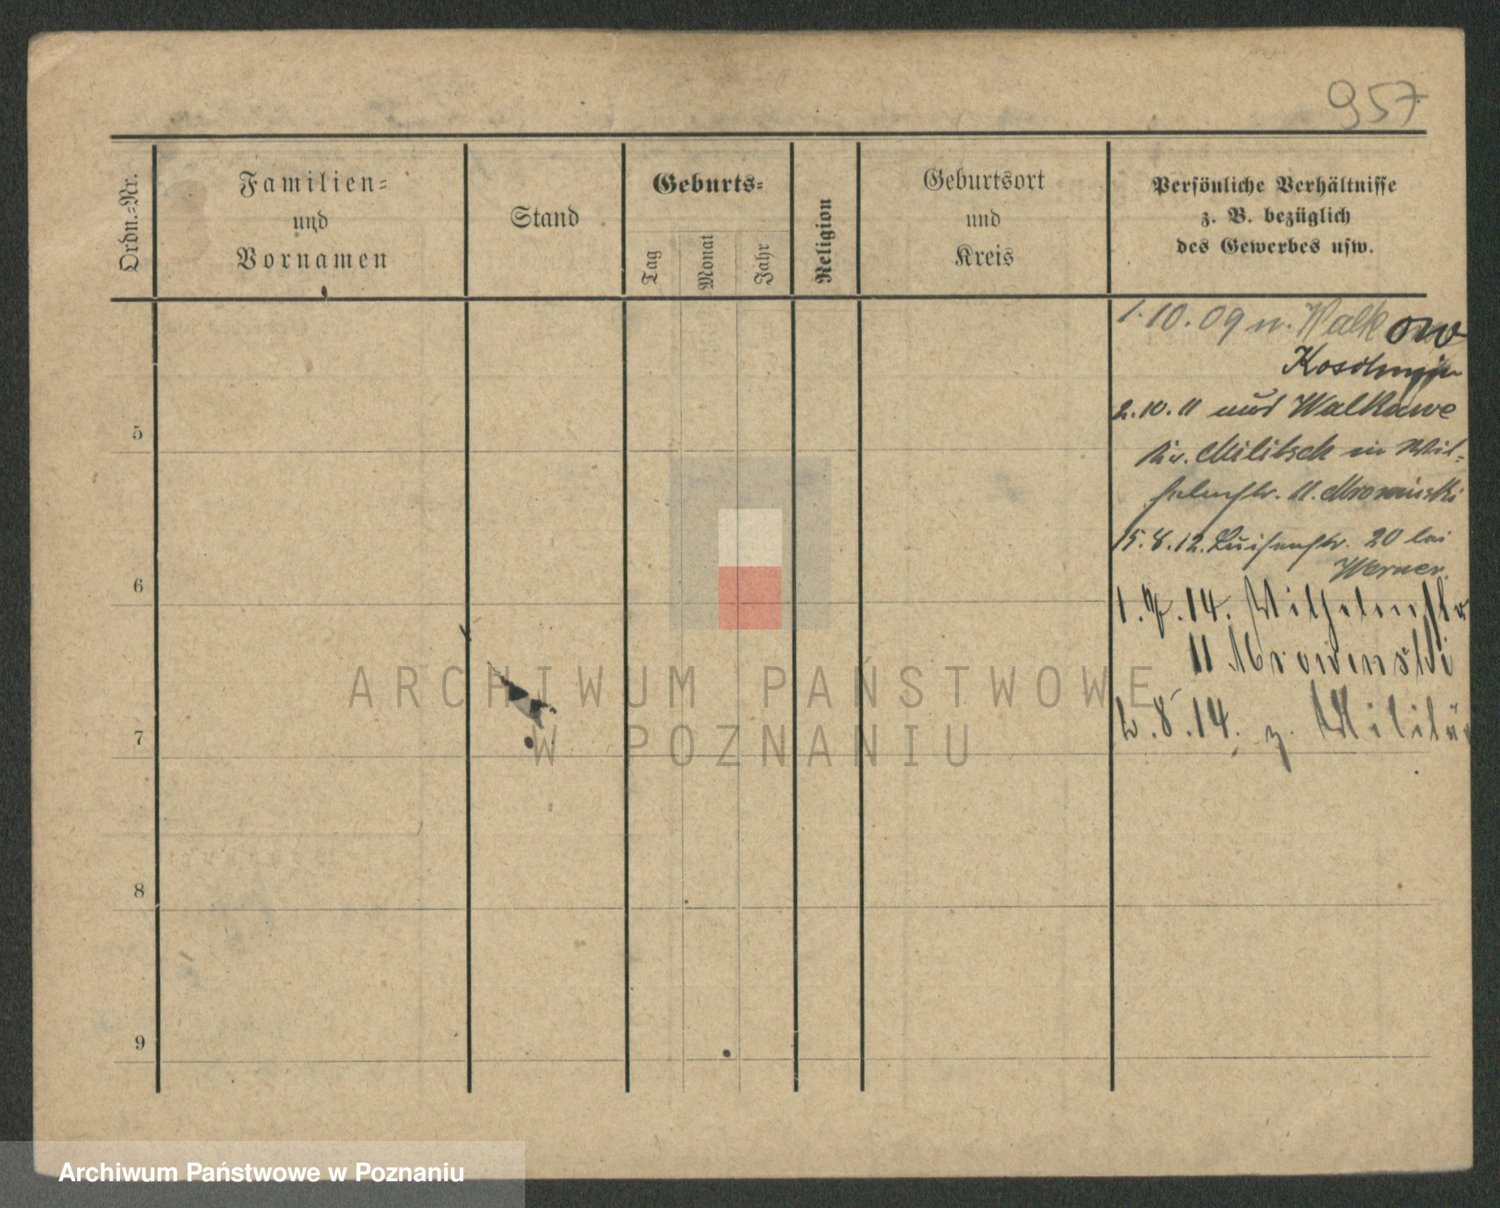 957
Ordn.=Nr.
Familien=
und
Vornamen
Stand
Geburts=
Tag
Monat
Jahr
Religion
Geburtsort
und
Kreis
Persönliche Verhältnisse
z. B. bezüglich
des Gewerbes usw.
1.10.09 n. Walkow
Koschmin
2.10.11 aus Walkawe
Kr. Militsch in Wil-
helmstr. 11. Mrowinski
15.8.12. Luisenstr. 20 bei
Werner.
5
1. 14. Wilhelmstr
11 Mrowinski
6
2.8.14. z. Militär
7
8
9
ARCHIWUM PAŃSTWOWE
W POZNANIU
Archiwum Państwowe w Poznaniu